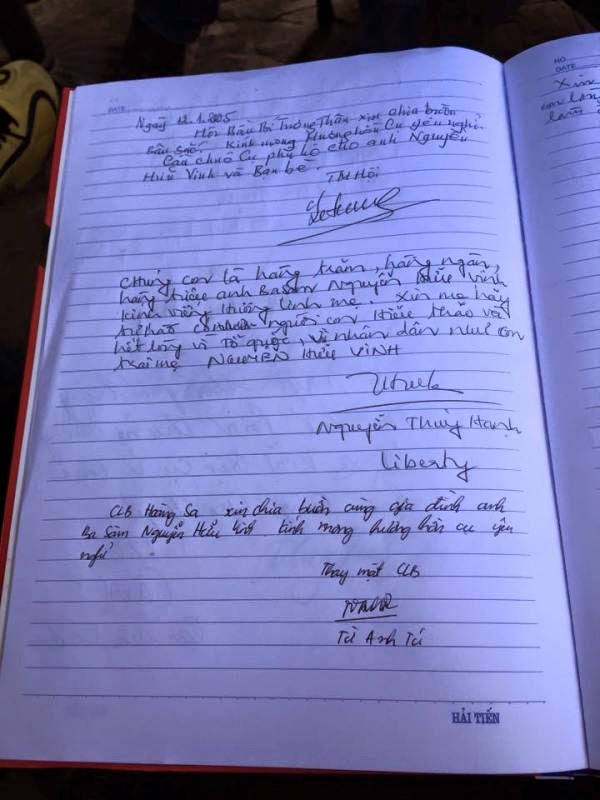 DATE
Ngày 12.1.2015
Hội Bầu Bí Tương Thân xin chia buồn
sâu sắc. Kính mong Hương hồn Cụ yên nghỉ.
Cầu chúc Cụ phù hộ cho anh Nguyễn
Hữu Vinh và Bạn bè.
TM Hội
Chúng con là hàng trăm, hàng ngàn,
hàng triệu anh Basam Nguyễn Hữu Vinh
kính viếng Hương linh mẹ. Xin mẹ hãy
tự hào người con Hiếu thảo và
hết lòng vì Tổ quốc, vì nhân dân như con
trai mẹ NGUYỄN HỮU VINH
Nguyễn Thúy Hạnh
Liberty
CLB Hoàng Sa xin chia buồn cùng gia đình anh
Ba Sàm Nguyễn Hữu Vinh kính mong hương hồn cụ yên
nghỉ
Thay mặt CLB
Từ Anh Tú
HẢI TIẾN
NO
DATE
Xin
con lòng
làm